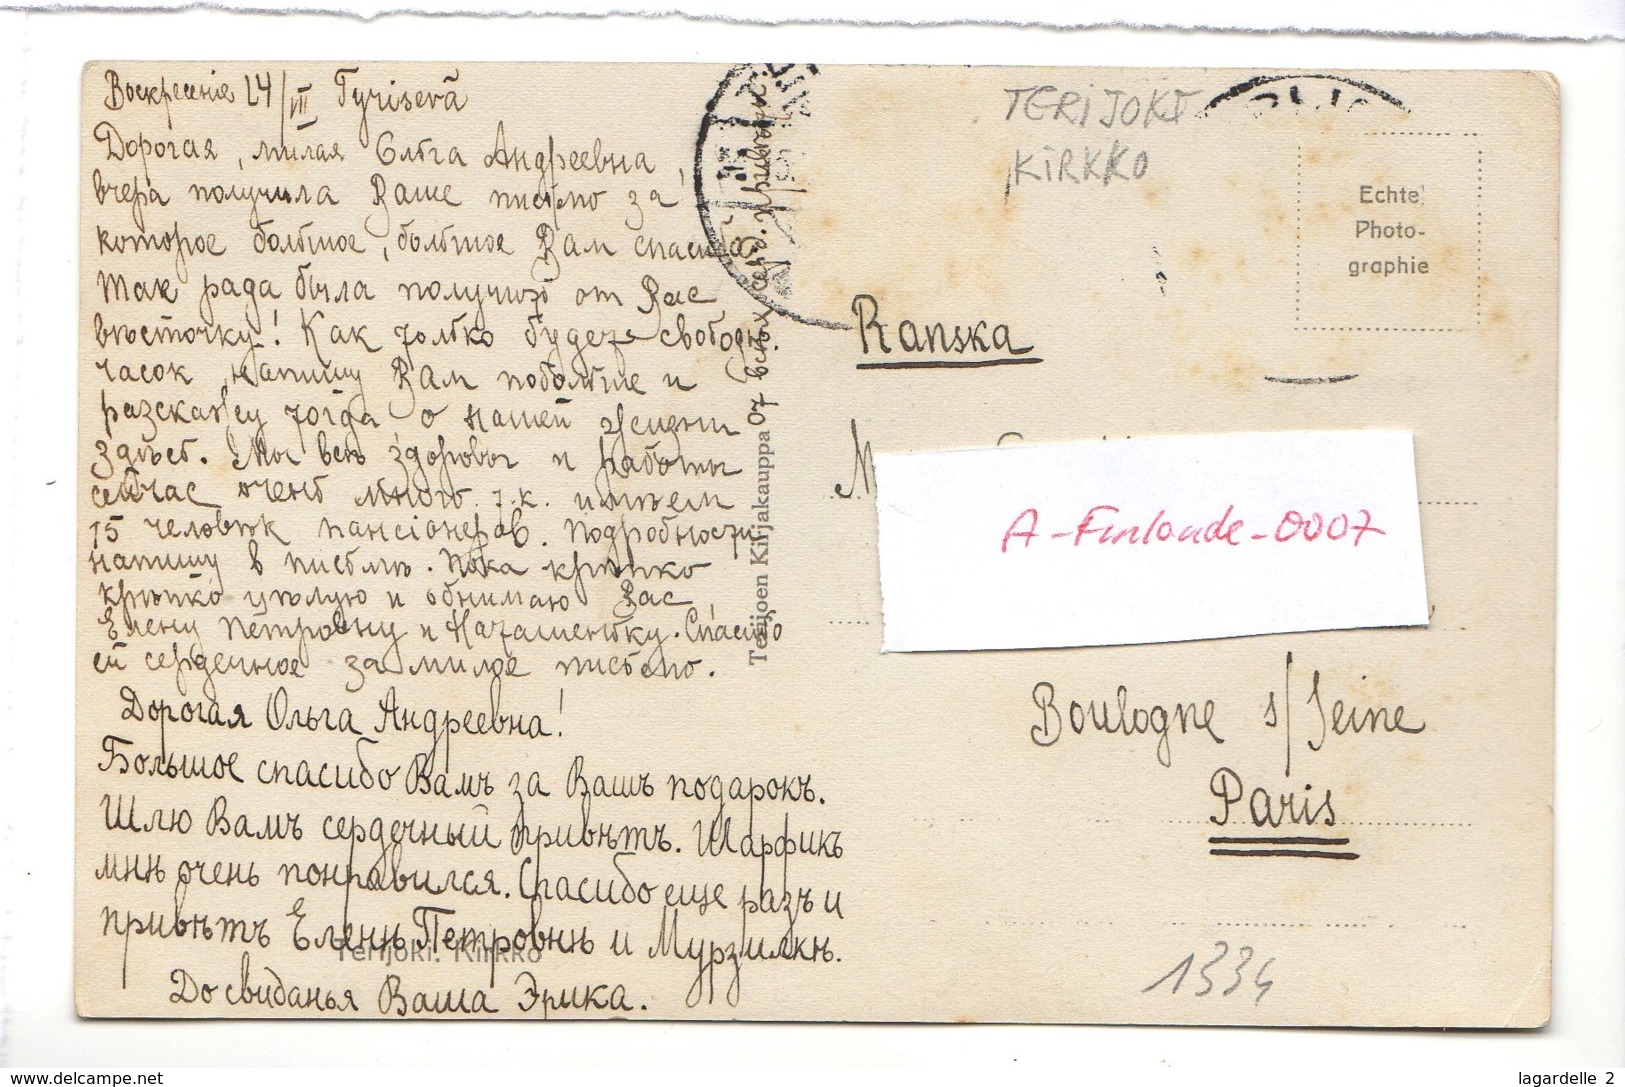 Воскресенiе 24/VIII Tyrisevä
Дорогая, милая Ольга Андреевна,
вчера получила Ваше письмо за
которое большое, большое Вам спасибо
Так рада была получить от Вас
вѣсточку! Как только будет свободн.
часок, напишу Вам побольше и
разскажу тогда о нашей жизни
здѣсь. Мы всѣ здоровы и работы
сейчас очень много т.к. имѣем
15 человѣк пансіонеров. Подробности
напишу в письмѣ. Пока крѣпко
крѣпко цѣлую и обнимаю Вас
Елену Петровну и Наташеньку. Спасибо
ей сердечное за милое письмо.
Дорогая Ольга Андреевна!
Большое спасибо Вамъ за Вашъ подарокъ.
Шлю Вамъ сердечный привѣтъ. Шарфикъ
мнѣ очень понравился. Спасибо еще разъ и
привѣтъ Еленѣ Петровнѣ и Мурзилкѣ.
До свиданья Ваша Эрика.
Terijoki. Kirkko
Terijoen Kirjakauppa
От всѣх
TERIJOKI
KIRKKO
Echte
Photo-
graphie
Ranska
M
A-Finlande-0007
Boulogne s/Seine
Paris
1334
www.delcampe.net
lagardelle 2